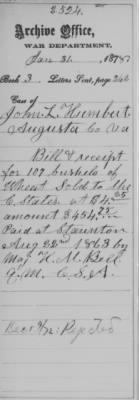 2524.
Archive Office,
WAR DEPARTMENT,
Jan 31. 1878
Book 3. Letters Sent, page 246
Case of
John L. Humbert
Augusta Co Va
Bill & receipt
for 107 bushels of
Wheat Sold to the
C. States at $4.25
amount $454.75
Paid at Staunton
Aug 22d 1863 by
Maj H. M. Bell
Q. M. C. S. A.